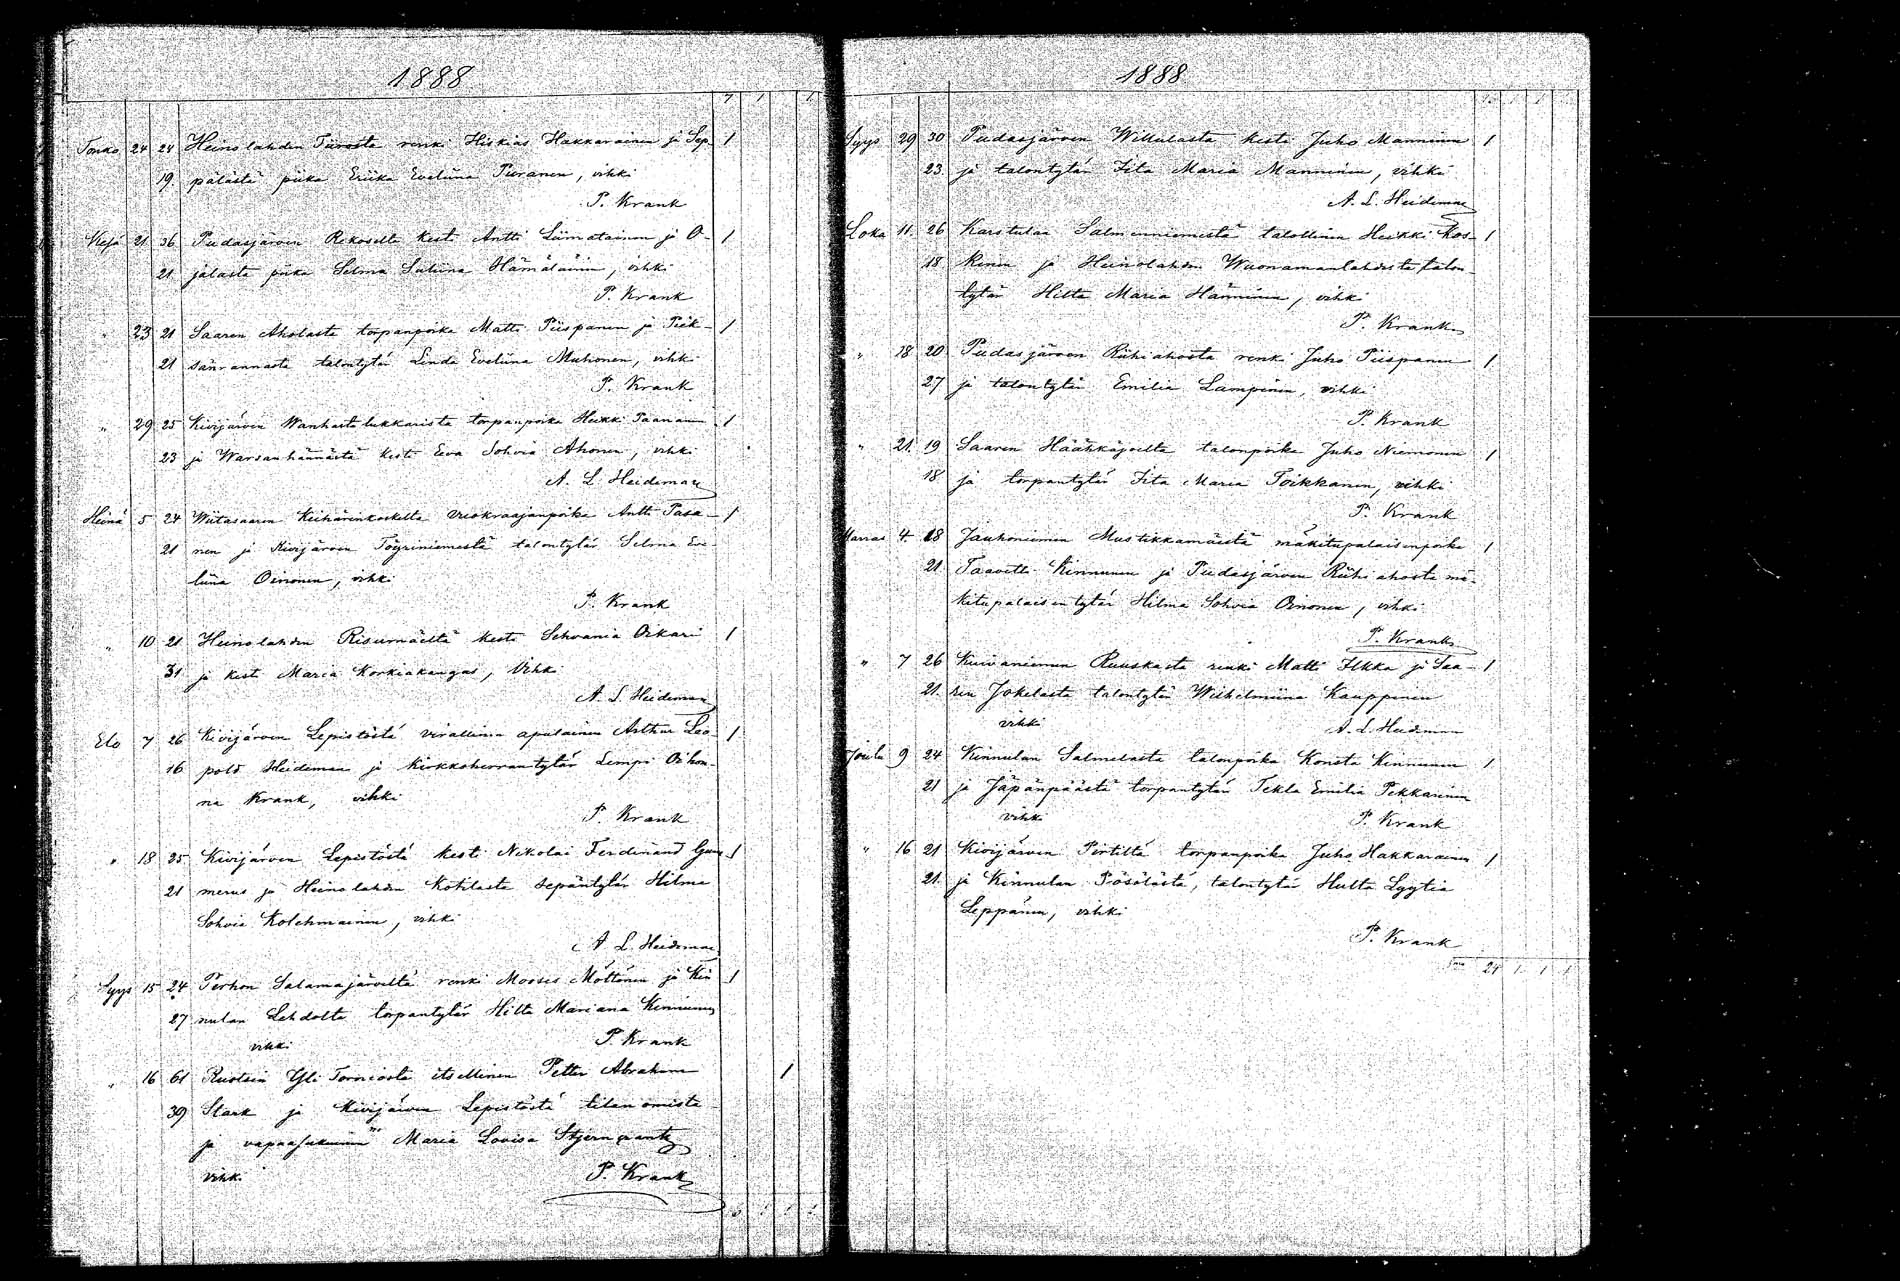 1888
7 1 1
Touko 24 24 Heinolahden Turosta renki Hiskias Hakkarainen ja Sep- 1
19. pälästä piika Eriika Eveliina Piiranen, vihki
P. Krank
Kesä 21 36 Pudasjärven Rekoselta kesti Antti Liimatainen ja O- 1
21 jalasta piika Selma Hämäläinen, vihki
P. Krank
" 23 21 Saaren Aholasta torpanpoika Matti Piispanen ja Piek- 1
21 sänrannasta talontytär Linda Eveliina Muhonen, vihki
P. Krank
" 29 25 Kivijärven Wanhasta lukkarista torpanpoika Heikki Paananen 1
23 ja Warsanhännästä kesti Eeva Sohvia Ahonen, vihki
A. L. Heideman
Heinä 5 24 Wiitasaaren Keihärinkoskelta vuokraajanpoika Antti Pasa- 1
21 nen ja Kivijärven talontytär Selma Eve-
liina Oinonen, vihki
P. Krank
" 10 21 Heinolahden Risumäeltä kesti Oikari 1
31 ja kesti Maria Korkiakangas, vihki
A. L. Heideman
Elo 7 26 Kivijärven Lepistöstä virallinen apulainen Arthur Leo- 1
16 pold Heideman ja kirkkoherrantytär Lempi
na Krank, vihki
P. Krank
" 18 25 Kivijärven Lepistöstä kesti Nikolai Ferdinand Gum- 1
21 merus ja Heinolahden Kotilasta sepäntytär Hilma
Sohvia Kolehmainen, vihki
A. L. Heideman
Syys 15 24 Perhon Salamajärveltä renki Mooses Möttönen ja Kin- 1
27 nulan Lehdolta torpantytär Hilta Mariana Kinnunen
vihki P. Krank
" 16 61 Ruotsin Yli Torniosta itsellinen Petter Abraham 1
39 Stark ja Kivijärven Lepistöstä tilanomista-
ja vapaasukuinen Maria Lovisa Stjerncrantz
vihki P. Krank
1888
Syys 29 30 Pudasjärven kesti Juho Manninen 1
23 ja talontytär Fita Maria Manninen, vihki
A. L. Heideman
Loka 11. 26 Karstulan Salmenniemestä talollinen Heikki Kos- 1
18 kinen ja Heinolahden Wuonamanlahdesta talon-
tytär Hilta Maria Hänninen, vihki
P. Krank
" 18 20 Pudasjärven Riihiahosta renki Juho Piispanen 1
27 ja talontytär Emilia Lampinen, vihki
P. Krank
" 21. 19 Saaren Häähkäjoelta talonpoika Juho Niemonen 1
18 ja torpantytär Fita Maria Toikkanen, vihki
P. Krank
Marras 4. 28 Jauhoniemen Mustikkamäestä mäkitupalaisenpoika 1
21. Taavetti Kinnunen ja Pudasjärven Riihiahosta mä-
kitupalaisentytär Hilma Sohvia Oinonen, vihki
P. Krank
" 7 26 Kuivaniemen Ruuskasta renki Matti Ilkka ja Saa- 1
21. ren Jokelasta talontytär Wilhelmiina Kauppinen
vihki A. L. Heideman
Joulu 9 24 Kinnulan Salmelasta talonpoika Konsta Kinnunen 1
21 ja Jäpänpäästä torpantytär Tekla Emilia Pekkarinen
vihki P. Krank
" 16 21 Kivijärven Pirtiltä torpanpoika Juho Hakkarainen 1
21. ja Kinnulan Pösölästä, talontytär Hulta Lyytia
Leppänen, vihki
P. Krank
24 1 1 1